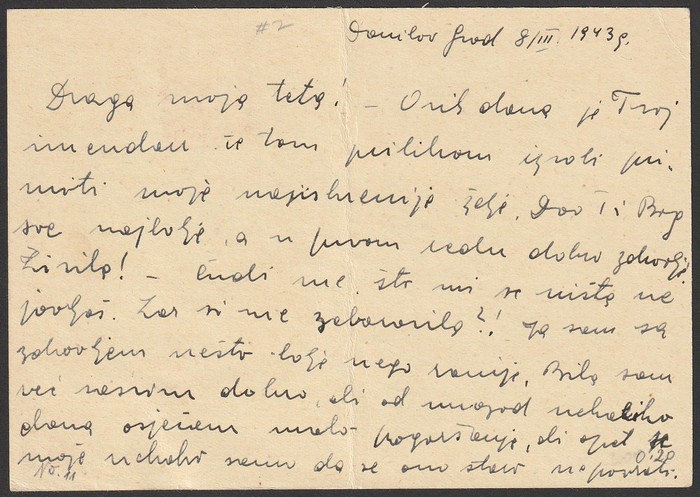 #2
Danilov Grad 8/III. 1943 g.
Draga moja teta! – Ovih dana je Tvoj
imendan te tom prilikom izvoli pri-
miti moje najiskrenije želje. Dao Ti Bog
sve najbolje, a u prvom redu dobro zdravlje
Živila! – Čudi me što mi se ništa ne
javljaš. Zar si me zaboravila?! Ja sam sa
zdravljem nešto bolje nego ranije. Bila sam
već sasvim dobro, ali od unazad nekoliko
dana osjećam malo pogoršanje, ali opet se
moje nekako samo da se ono staro ne povrati.
No. 11
0.20